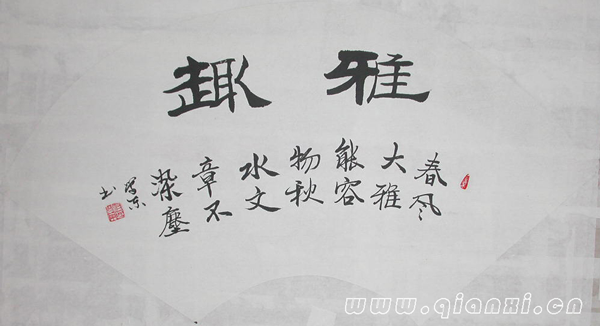 雅趣
春风
大雅
能容
物秋
水文
章不
染塵
书
www.qianxi.cn